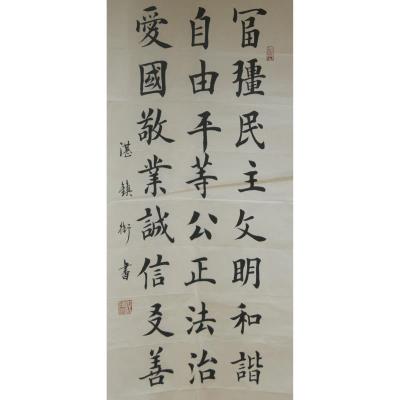 冨彊民主文明和諧
自由平等公正法治
愛國敬業誠信友善
湛鎮衡書